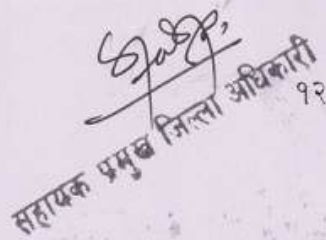 सहायक प्रमुख जिल्ला अधिकारी
१२